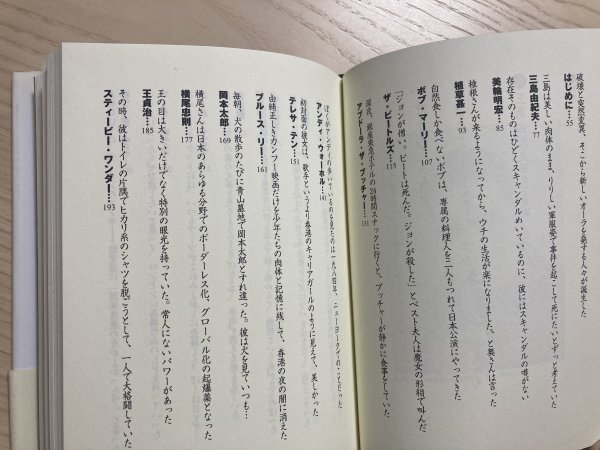 はじめに…55
破壊と突然変異、そこから新しいオーラを発する人々が誕生した
三島由紀夫…77
三島は美しい肉体のまま、りりしい軍服姿で事件を起こして死にたいとずっと考えていた
美輪明宏…85
存在そのものはひどくスキャンダルめいているのに、彼にはスキャンダルの噂がない
植草甚一…93
植根さんが来るようになってから、ウチの生活が楽になりました、と奥さんは言った
ボブ・マーリー…107
自然食しか食べないボブは、専属の料理人を二人もつれて日本公演にやってきた
ザ・ビートルズ…115
「ジョンが憎い。ピートは死んだ。ジョンが殺した」とベスト夫人は魔女の形相で叫んだ
アブドーラ・ザ・ブッチャー…131
深夜、銀座東急ホテルの24時間スナックに行くと、ブッチャーが静かに食事をしていた
アンディ・ウォーホル…141
ぼくがアンディの歩いているのを見たのは一九八四年、ニューヨークでのことだった
テレサ・テン…151
初対面の彼女は、歌手というより香港のキャリアガールのように見えて、美しかった
ブルース・リー…161
由緒正しきカンフー映画だけを少年たちの肉体と記憶に残して、香港の夜の闇に消えた
岡本太郎…169
毎朝、犬の散歩のたびに青山墓地で岡本太郎とすれ違った。彼は犬を見ていつも…
横尾忠則…177
横尾さんは日本のあらゆる分野でのボーダーレス化、グローバル化の起爆薬となった
王貞治…185
王の目は大きいだけでなく特別の眼光を持っていた。常人にないパワーがあった
スティービー・ワンダー…193
その時、彼はトイレの片隅でヒカリ系のシャツを脱ごうとして、一人で大格闘していた